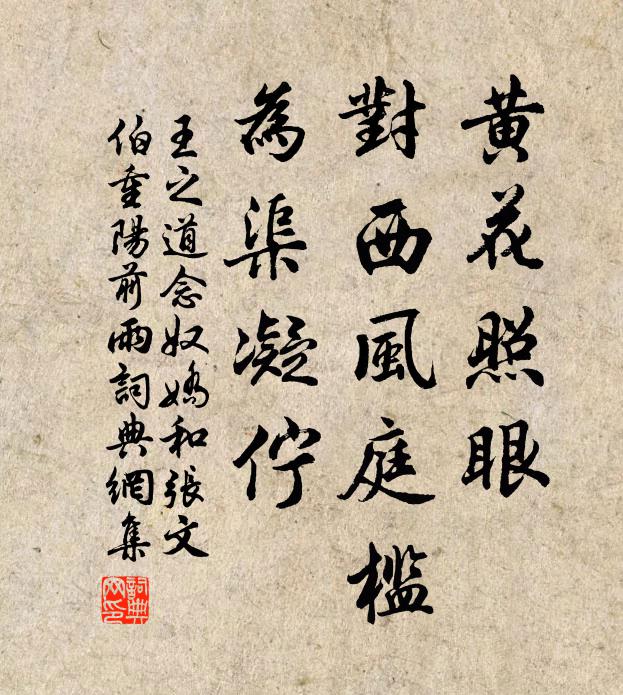 黄花照眼
對西風庭檻
為渠凝佇
王之道念奴嬌和張文
伯重陽前雨詞典網集